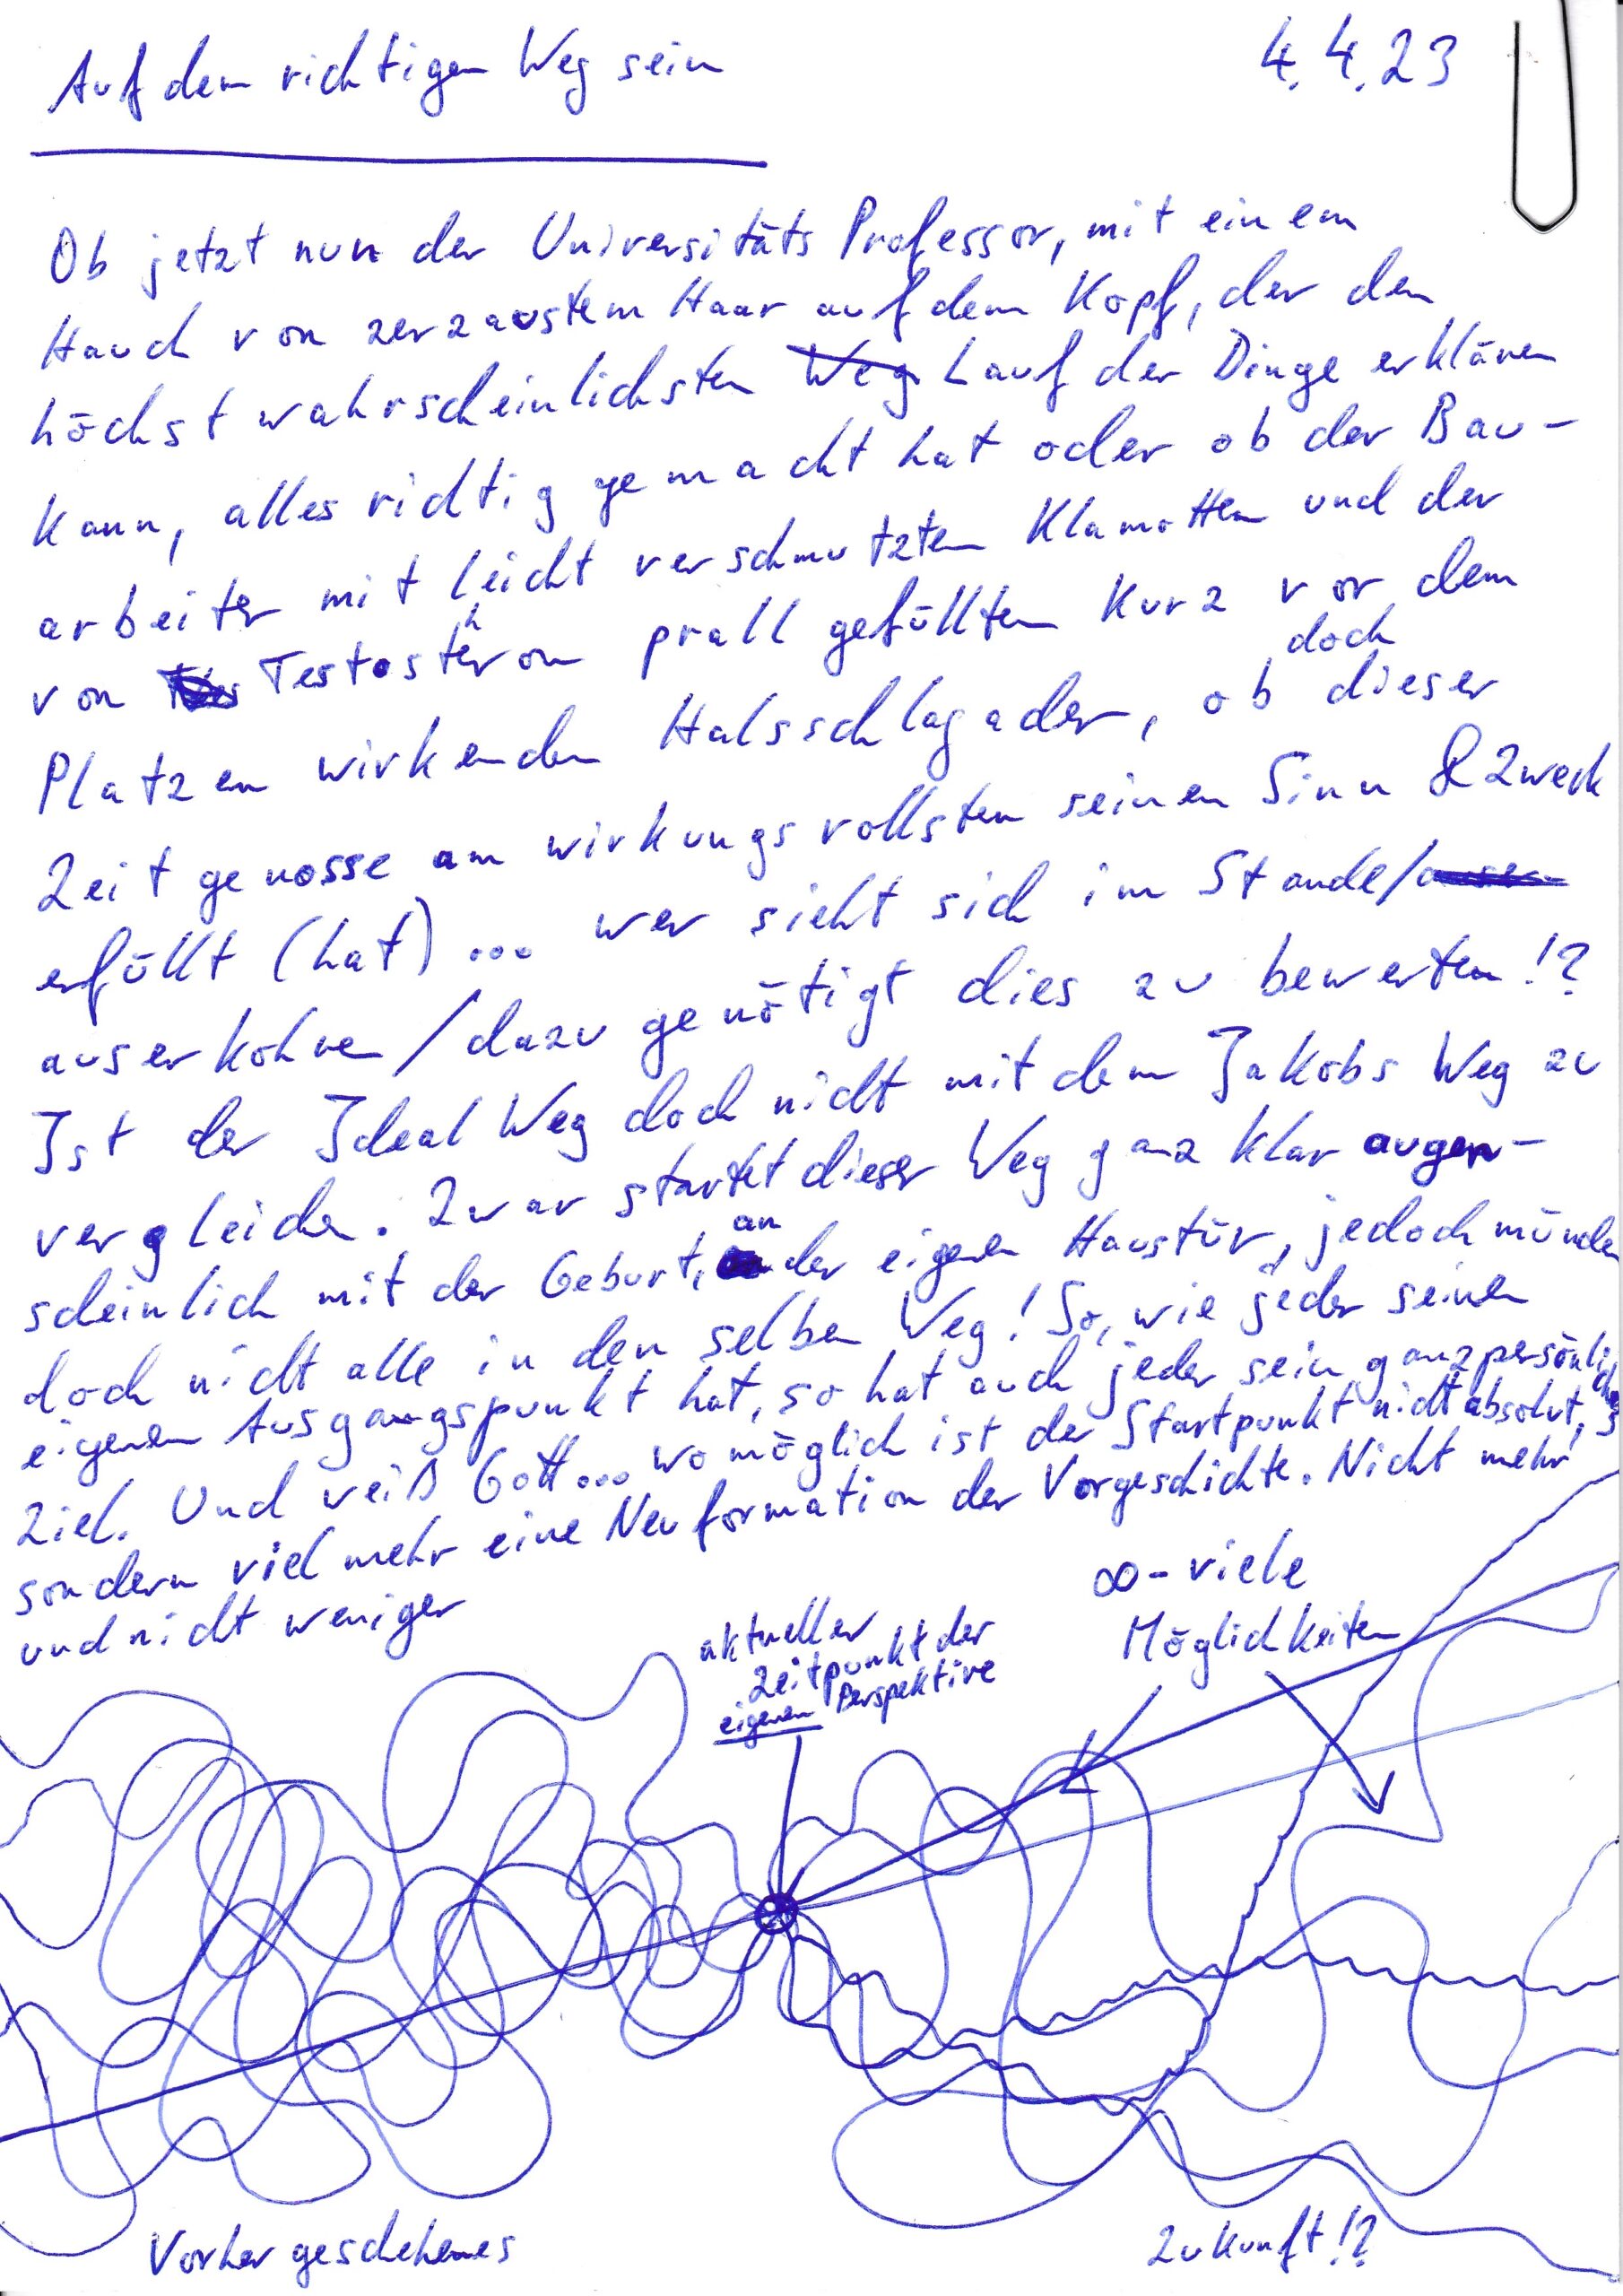 Auf dem richtigen Weg sein 4.4.23
Ob jetzt nun der Universitäts Professor, mit einem
Hauch von zerzaustem Haar auf dem Kopf, der den
höchst wahrscheinlichsten Weg Lauf der Dinge erklären
kann, alles richtig gemacht hat oder ob der Bau-
arbeiter mit leicht verschmutzten Klamotten und der
von Testosteron prall gefüllten Kurz vor dem
Platzen wirkenden Halsschlagader, ob doch dieser
Zeitgenosse am wirkungsvollsten seinen Sinn & Zweck
erfüllt (hat) ... wer sieht sich im Stande/
auserkohren/dazu genötigt dies zu bewerten!?
Ist der Ideal Weg doch nicht mit dem Jakobs Weg zu
vergleichen. Zwar startet dieser Weg ganz klar augen-
scheinlich mit der Geburt, an der eigenen Haustür, jedoch münden
doch nicht alle in den selben Weg! So, wie jeder seinen
eigenen Ausgangspunkt hat, so hat auch jeder sein ganz persönliches
Ziel. Und weiß Gott... womöglich ist der Startpunkt nicht absolut,
sondern viel mehr eine Neuformation der Vorgeschichte. Nicht mehr
und nicht weniger
∞-viele
Möglichkeiten
aktueller
Zeitpunkt der
eigenen Perspektive
Vorher geschehenes
Zukunft!?